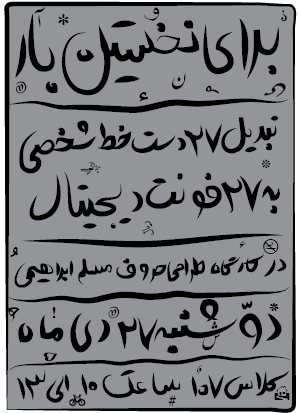 برای نخستین بار
تبدیل ۲۷ دست خط شخصی
به ۲۷ فونت دیجیتال
در کارگاه طراحی حروف مسلم ابراهیمی
دوشنبه ۲۷ دی ماه
کلاس ۱۰۷ ساعت ۱۰ الی ۱۳